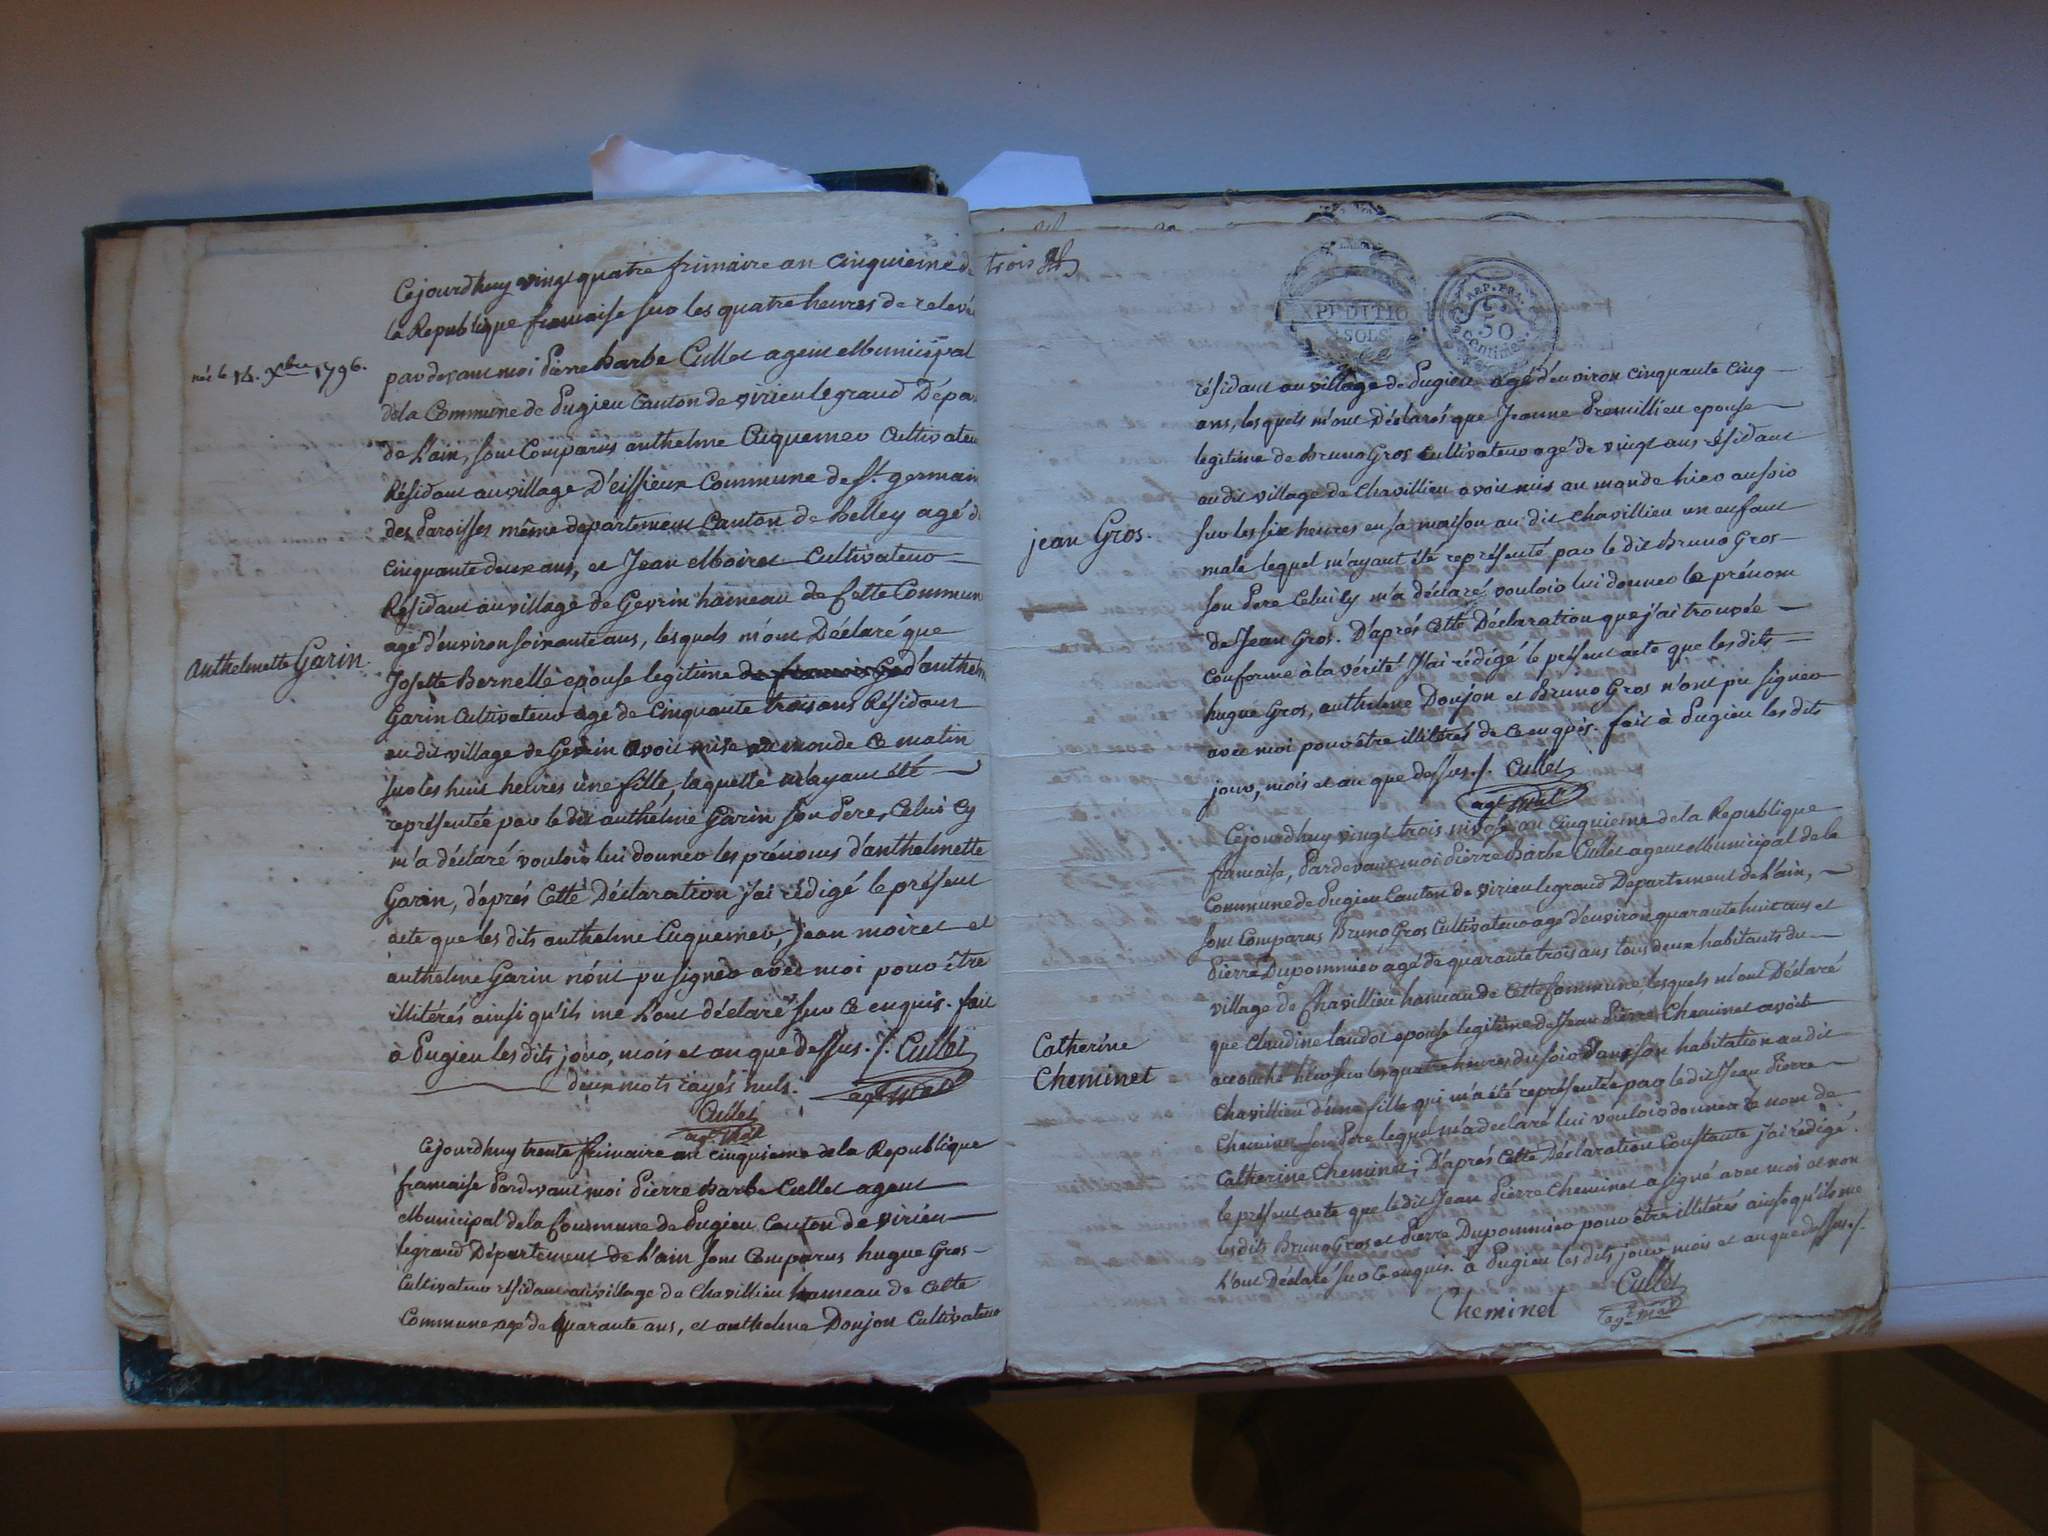 Cejourdhuy vingt quatre frimaire an cinquieme de
la Republique francaise sur les quatre heures de relevée
né le 14. Xbre 1796.
pardevant moi Pierre Barbe Cullet agent Municipal
dela Commune de Pugieu Canton de virieulegrand Dépar
de L'ain, sont Comparus anthelme Cuquemer Cultivateu
Résidant au village D'eissieux Commune de St. germain
des Paroisses même département Canton de Belley agé de
cinquante deux ans, et Jean Moiret Cultivateur
Résidant au village de Gevrin hameau de Cette Commun
agé d'environ soixante ans, lesquels m'ont Déclaré que
anthelmette Garin
Josette Bernelle epouse legitime de francois Ga d'anthelm
Garin Cultivateur agé de Cinquante trois ans Résidant
au dit village de Gevrin avoir mise au monde ce matin
sur les huit heures une fille, laquelle m'ayant été
représentée par le dit anthelme Garin son Pere, Celui Cy
m'a déclaré vouloir lui donner les prénoms d'anthelmette
Garin, d'aprés Cette Déclaration j'ai rédigé le présent
acte que les dits anthelme Cuquemer, Jean moiret et
anthelme Garin n'ont pu signer avec moi pour être
illitérés ainsi qu'ils me L'ont déclaré sur ce enquis. fait
à Pugieu les dits jour, mois et an que dessus ./. Cullet
deux mots rayés nuls. agt. mal
Cullet
agt. mal
Cejourdhuy trente frimaire an cinquieme dela Republique
francaise Pardevant moi Pierre Barbe Cullet agent
Municipal dela Commune de Pugieu Canton de virieu
legrand Département de L'ain sont Comparus hugue Gros
Cultivateur résidant au village de Chavillieu hameau de Cette
Commune agé de quarante ans, et anthelme Donjon Cultivateur
trois
EXPEDITIO
SOLS
50
centimes
résidant au village de Pugieu agé d'environ cinquante cinq
ans, lesquels m'ont Déclarés que Jeanne Premillieu epouse
legitime de Bruno Gros cultivateur agé de vingt ans résidant
au dit village de Chavillieu avoit mis au monde hier au soir
jean Gros.
sur les six heures en sa maison au dit Chavillieu un enfant
male lequel m'ayant été représenté par le dit Bruno Gros
son Pere Celui Cy m'a déclaré vouloir lui donner le prénom
de Jean Gros. D'aprés Cette Déclaration que j'ai trouvée
Conforme à la vérité J'ai rédigé le présent acte que les dits
hugue Gros, anthelme Donjon et Bruno Gros n'ont pu signer
avec moi pour être illitérés de ce enquis. fait à Pugieu les dits
jour, mois et an que dessus ./. Cullet
agt. mal
Cejourdhuy vingt trois nivose an Cinquieme dela Republique
francaise, Pardevant moi Pierre Barbe Cullet agent Municipal de la
Commune de Pugieu Canton de virieu legrand Departement de L'ain,
sont Comparus Bruno Gros Cultivateur agé d'environ quarante huit ans et
Pierre Dupommier agé de quarante trois ans tous deux habitants du
village de Chavillieu hameau de Cette Commune, lesquels m'ont Déclaré
Catherine
Cheminet
que Claudine landot epouse legitime de Jean Pierre Cheminet avoit
accouché hier sur les quatre heures du soir dans son habitation au dit
Chavillieu d'une fille qui m'a été représentée par le dit Jean Pierre
Cheminet son Pere lequel m'a declaré lui vouloir donner le nom de
Catherine Cheminet; D'aprés Cette Déclaration Constante j'ai rédigé
le présent acte que le dit Jean Pierre Cheminet a signé avec moi et non
les dits Bruno Gros et Pierre Dupommier pour être illitérés ainsi qu'ils me
L'ont Déclaré sur Ce enquis. à Pugieu les dits jour mois et an que dessus ./.
Cheminet Cullet
agt. mal